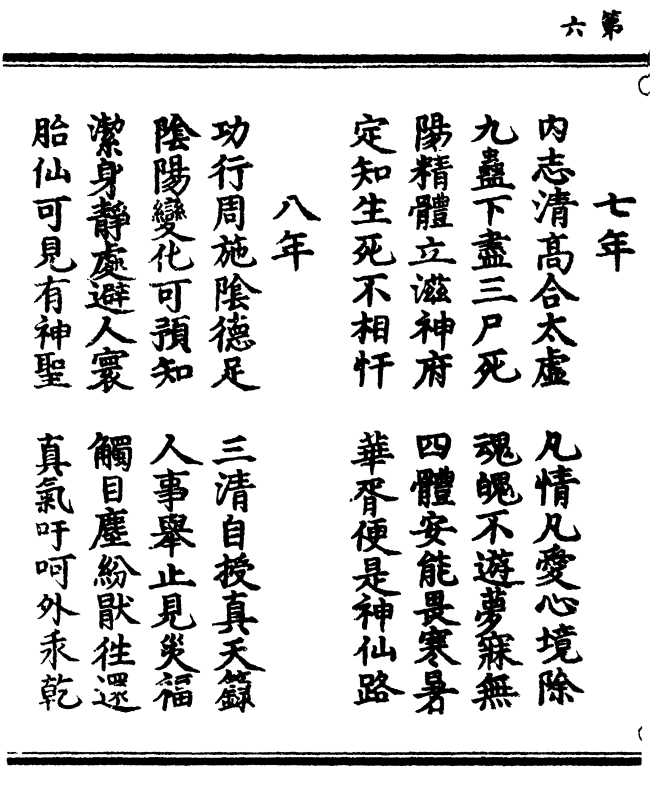 第六
七年
内志清髙合太虛 凡情凡愛心境除
九蠱下盡三尸死 魂魄不遊夢寐無
陽精體立滋神府 四體安能畏寒暑
定知生死不相忓 華胥便是神仙路
八年
功行周施隂德足 三清自授真天籙
隂陽變化可預知 人事舉止見災福
潔身靜處避人寰 觸目塵紛猒徃還
胎仙可見有神聖 真氣吁呵外汞乾